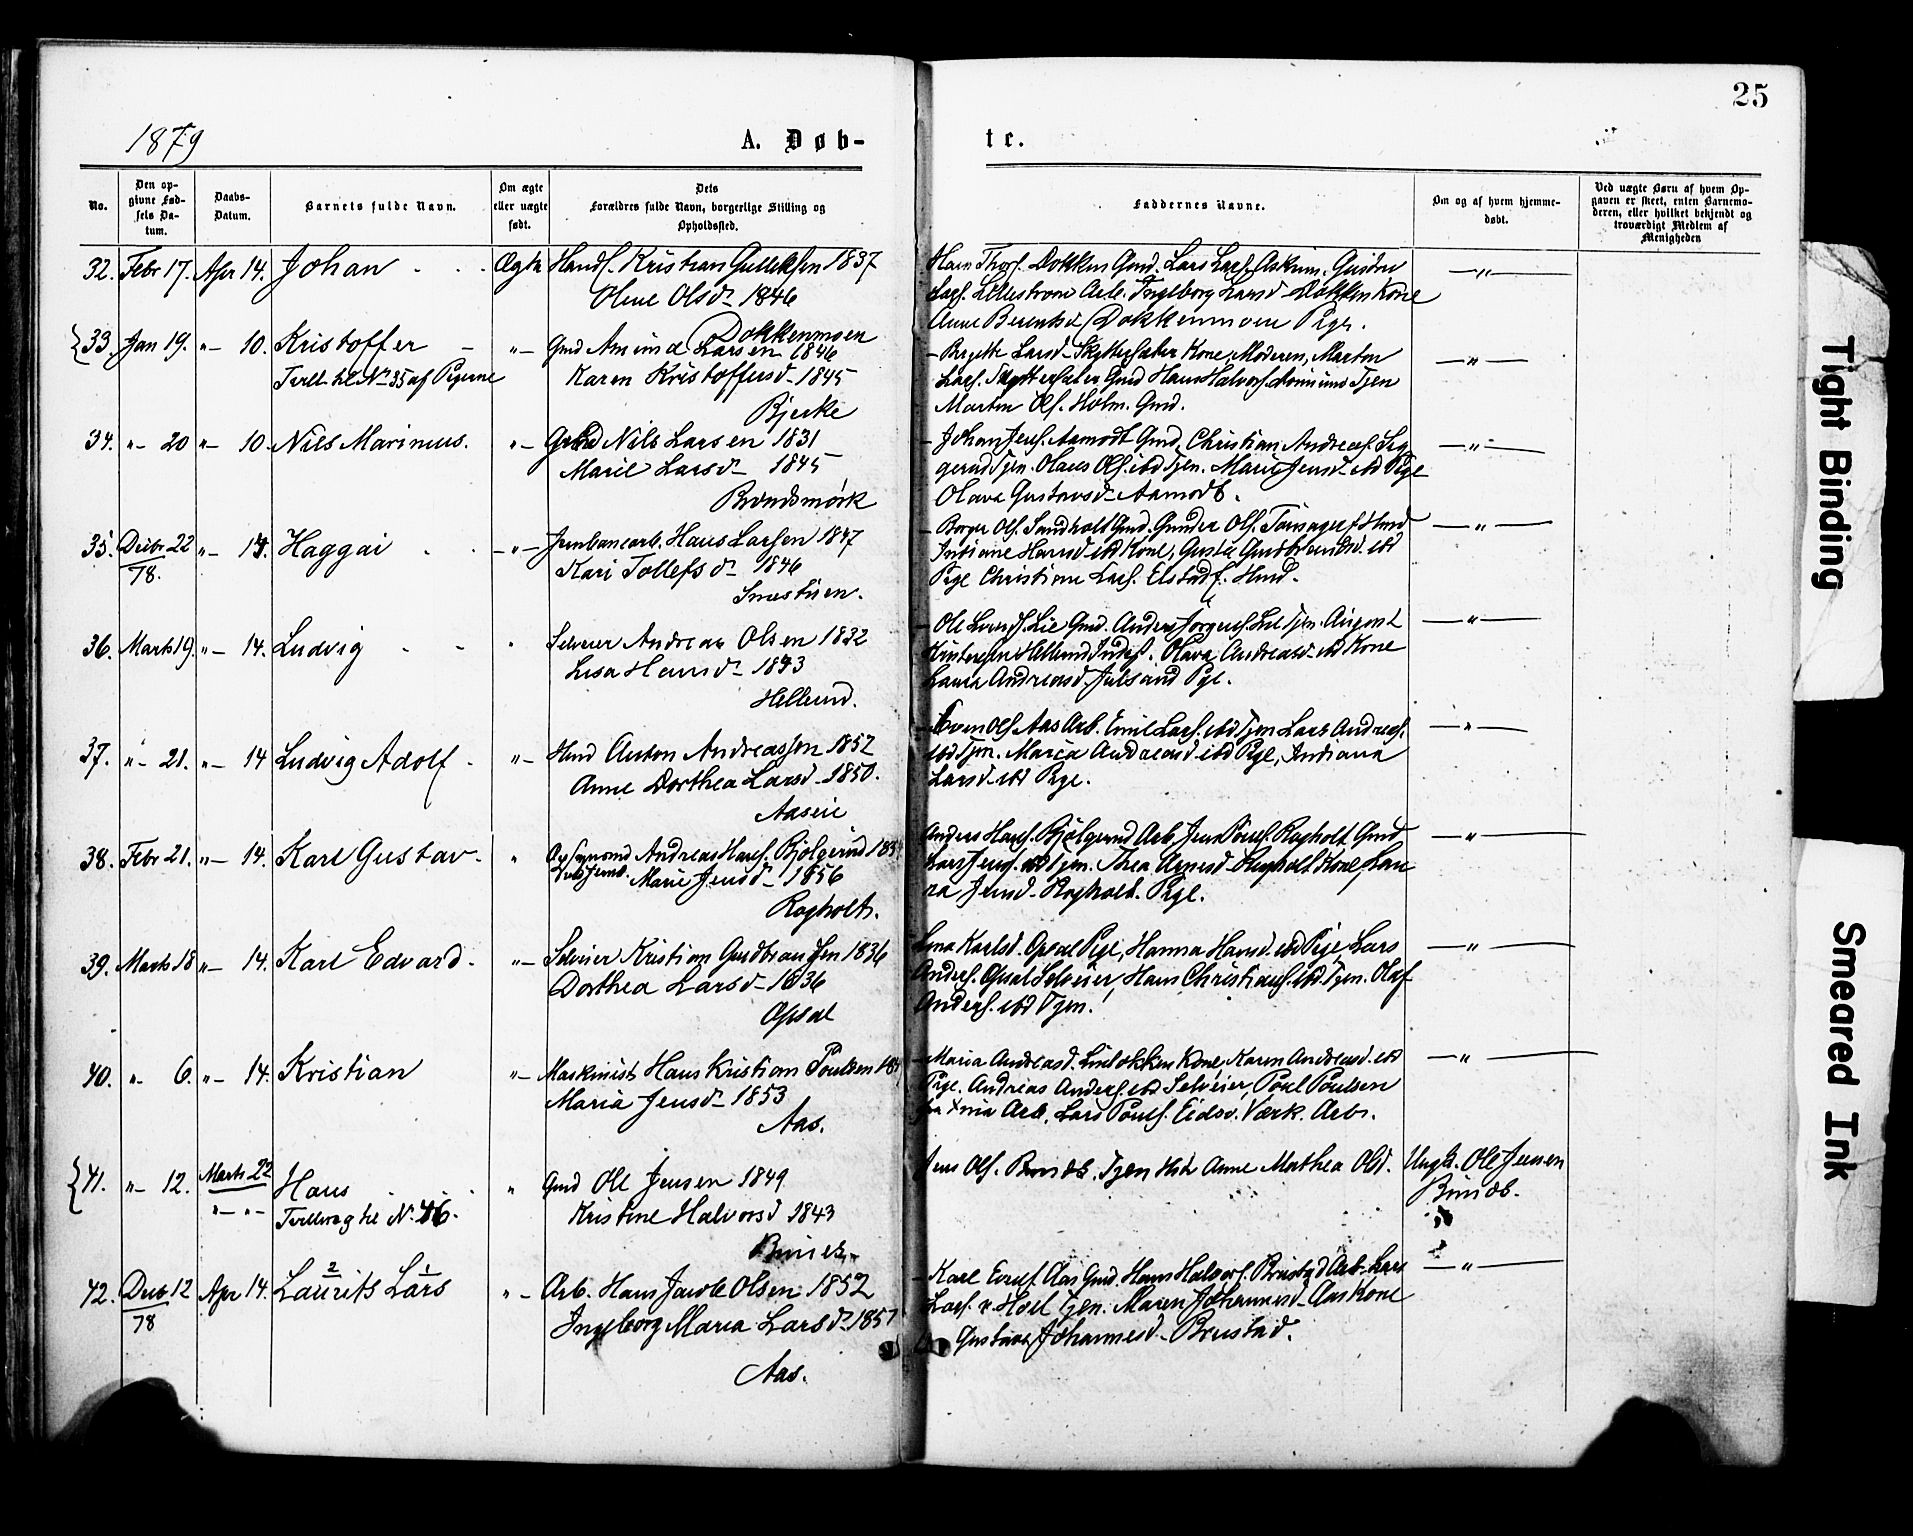 25
1879
A. Døb-
te.
No.
Den op-
givne Fød-
sels Da-
tum.
Daabs-
Datum.
Barnets fulde Navn.
Om ægte
eller uægte
født.
Dets
Forældres fulde Navn, borgerlige Stilling og
Opholdssted.
Faddernes Navne.
Om og af hvem hjemme-
døbt.
Ved uægte Børn af hvem Op-
gaven er skeet, enten Barnemo-
deren, eller hvilket bekjendt og
troværdigt Medlem af
Menigheden
32. Febr 17. Apr 14. Johan Ægte Handl. Kristian Gulliksen 1837
Oline Olsd. 1846
Dokkenmoen
Hans Thors. Dokken Gmd. Lars Lars. Askrim.
Lars. Lillestrøm Arb. Ingeborg Larsd. Dokken Kone
Anne Berentsd. Dokkenmoen Pige.
33. Jan 19. "- 10. Kristoffer "- Gmd Larsen 1846
Tvill. til No 35 af Pigerne Karen Kristoffersd. 1845
Bjerke
Birgitte Larsd. Skyttersæter Kone, Moderen, Martin
Lars. Skyttersæter Gmd Hans Halvors. Tjen
Martin Ols. Holm. Gmd.
34. "- 20 "- 10. Nils Marinius. "- Nils Larsen 1831
Marie Larsd. 1845
Brøndsmørk
Johan Jens. Aamodt Gmd, Christian Andreas.
Tjen. Olaus Ols. ibd Tjen. Marie Jensd. ibd Pige
Olava Gustavsd. Aamodt.
35. Decbr 22 "- 14. Haggai "- Jernbanearb. Hans Larsen 1847
78. Kari Tollefsd. 1846
Smestuen.
Borger Ols. Sandholt Gmd. Gunder Ols.
Indiane Hansd. ibd Kone, Gusta Gudbrandsd. ibd
Pige Christian Lars. Elstad
36. Marts 19. "- 14. Ludvig Selveier Andreas Olsen 1832
Lisa Hansd. 1843
Hellund.
Ole Lie Gmd. Anders Jørgens. Lie Tjen. August
Hellund Inds. Olava Andreasd. ibd Kone
Laura Andreasd. Julsand Pige.
37. "- 21. "- 14 Ludvig Adolf "- Hmd Anton Andreassen 1852
Anne Dorthea Larsd. 1850.
Aaseie
Even Ols. Aas Arb. Emil Lars. ibd Tjen Lars Andreas.
ibd Tjen. Maria Andreasd. ibd Pige, Indiana
Larsd. ibd Pige.
38. Febr 21. "- 14. Karl Gustav. " Andreas Hans. Bjølgerud
Marie Jensd. 1856
Rogholt.
Anders Hans. Bjølgerud Arb. Jens Pouls. Rogholt Gmd
Lars Jens. ibd Tjen. Thea Rogholt Kone, Lau
ra Jensd. Rogholt. Pige.
39. Marts 18 "- 14. Karl Edvard. "- Selveier Kristian Gudbrandsen 1836
Dorthea Larsd. 1836
Opsal
Karlsd. Opsal Pige, Hanna Hansd. ibd Pige, Lars
Anders. Opsal Selveier, Hans Christians. ibd Tjen. Olaf
Anders. ibd Tjen.
40. "- 6. "- 14. Kristian "- Maskinist Hans Kristian Poulsen
Maria Jensd. 1853
Aas.
Maria Andreasd. Lindokken Kone, Karen Andreasd. ibd
Pige. Andreas Anders. ibd Selveier, Poul Poulsen
fra Xnia Arb. Lars Pouls. Eidsv. Værk. Arb.
41. "- 12. Marts 22 Hans " Gmd Ole Jensen 1849
"- "- Tvilling til No. 46. Kristine Halvorsd 1843
Jens Ols. Tjen Anne Mathea Olsd. Ungk. Ole Jensen
42. Decb 12 Apr 14. Laurits Lars "- Arb. Hans Jacob Olsen 1852
78 Ingeborg Maria Larsd. 1857
Aas.
Karl Evens. Aas Gmd. Hans Halvors. Brustad Arb. Lars
Lars. Tjen. Maren Johannesd. Aas Kone
Gustava Johannesd. Brustad.
Tight Binding
Smeared Ink